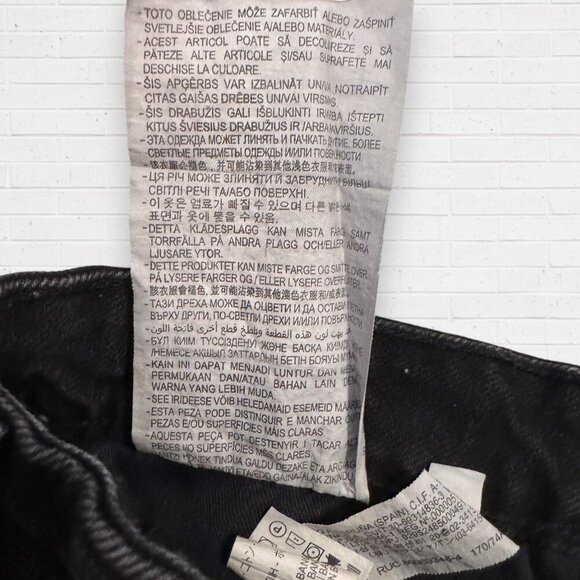 -TOTO OBLEČENIE MÔŽE ZAFARBIŤ ALEBO ZAŠPINIŤ
SVETLEJŠIE OBLEČENIE A/ALEBO MATERIÁLY.
-ACEST ARTICOL POATE SĂ DECOLOREZE ȘI SĂ
PĂTEZE ALTE ARTICOLE ȘI/SAU SUPRAFEȚE MAI
DESCHISE LA CULOARE.
-ŠIS APĢĒRBS VAR IZBALINĀT UN/VAI NOTRAIPĪT
CITAS GAIŠAS DRĒBES UN/VAI VIRSMAS.
-ŠIS DRABUŽIS GALI IŠBLUKINTI IR/ARBA IŠTEPTI
KITUS ŠVIESIUS DRABUŽIUS IR /ARBA PAVIRŠIUS.
-ЭТА ОДЕЖДА МОЖЕТ ЛИНЯТЬ И ПАЧКАТЬ ДРУГИЕ, БОЛЕЕ
СВЕТЛЫЕ ПРЕДМЕТЫ ОДЕЖДЫ И/ИЛИ ПОВЕРХНОСТИ.
-该衣服会褪色，并可能沾染到其他浅色衣服和/或
-ЦЯ РІЧ МОЖЕ ЛИНЯТИ Й ЗАБРУДНИТИ БІЛЬШ
СВІТЛІ РЕЧІ ТА/АБО ПОВЕРХНІ.
-이 옷은 염료가 빠질 수 있으며 다른 밝은 색
표면과 옷에 묻을 수 있음.
-DETTA KLÄDESPLAGG KAN MISTA FÄRG SAMT
TORRFÄLLA PÅ ANDRA PLAGG OCH/ELLER ANDRA
LJUSARE YTOR.
-DETTE PRODUKTET KAN MISTE FARGE OG SMITTE OVER
PÅ LYSERE FARGER OG / ELLER LYSERE OVERFLATER.
-該衣服會褪色，並可能沾染到其他淺色衣服和/或
-ТАЗИ ДРЕХА МОЖЕ ДА ОЦВЕТИ И ДА ОСТАВИ ПЕТНА
ВЪРХУ ДРУГИ, ПО-СВЕТЛИ ДРЕХИ И/ИЛИ ПОВЪРХНОСТИ.
-يبهت لون هذه القطعة وتلطخ قطع أخرى فاتحة اللون
-БҰЛ КИІМ ТҮССІЗДЕНУІ ЖӘНЕ БАСҚА КИІМДІ
/НЕМЕСЕ АҚШЫЛ ЗАТТАРДЫҢ БЕТІН БОЯУЫ МҮМКІН
-KAIN INI DAPAT MENJADI LUNTUR DAN
PERMUKAAN DAN/ATAU BAHAN LAIN DENGAN
WARNA YANG LEBIH MUDA.
-SEE IRIDEESE VÕIB HELEDAMAID ESEMEID
-ESTA PEZA PODE DISTINGUIR E MANCHAR OUTRAS
PEZAS E/OU SUPERFICIES MÁIS CLARAS.
-AQUESTA PEÇA POT DESTENYIR I TACAR ALTRES
PECES I/O SUPERFÍCIES MÉS CLARES.
JANTZI HONEK TINDUA GALDU DEZAKE ETA
(SPAIN), C.I.F. A-
170/74A